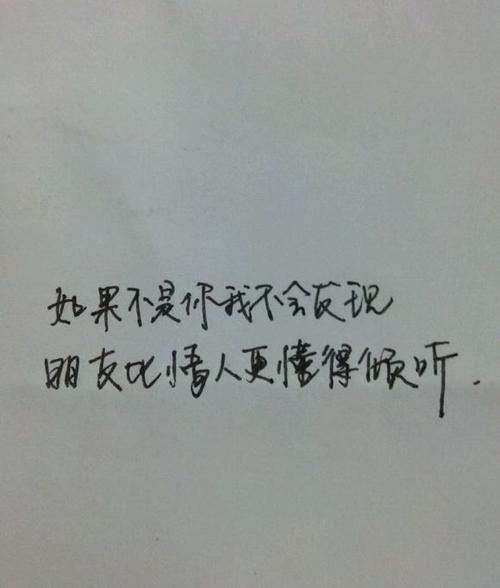 如果不是你我不会发现
朋友比情人更懂得倾听.